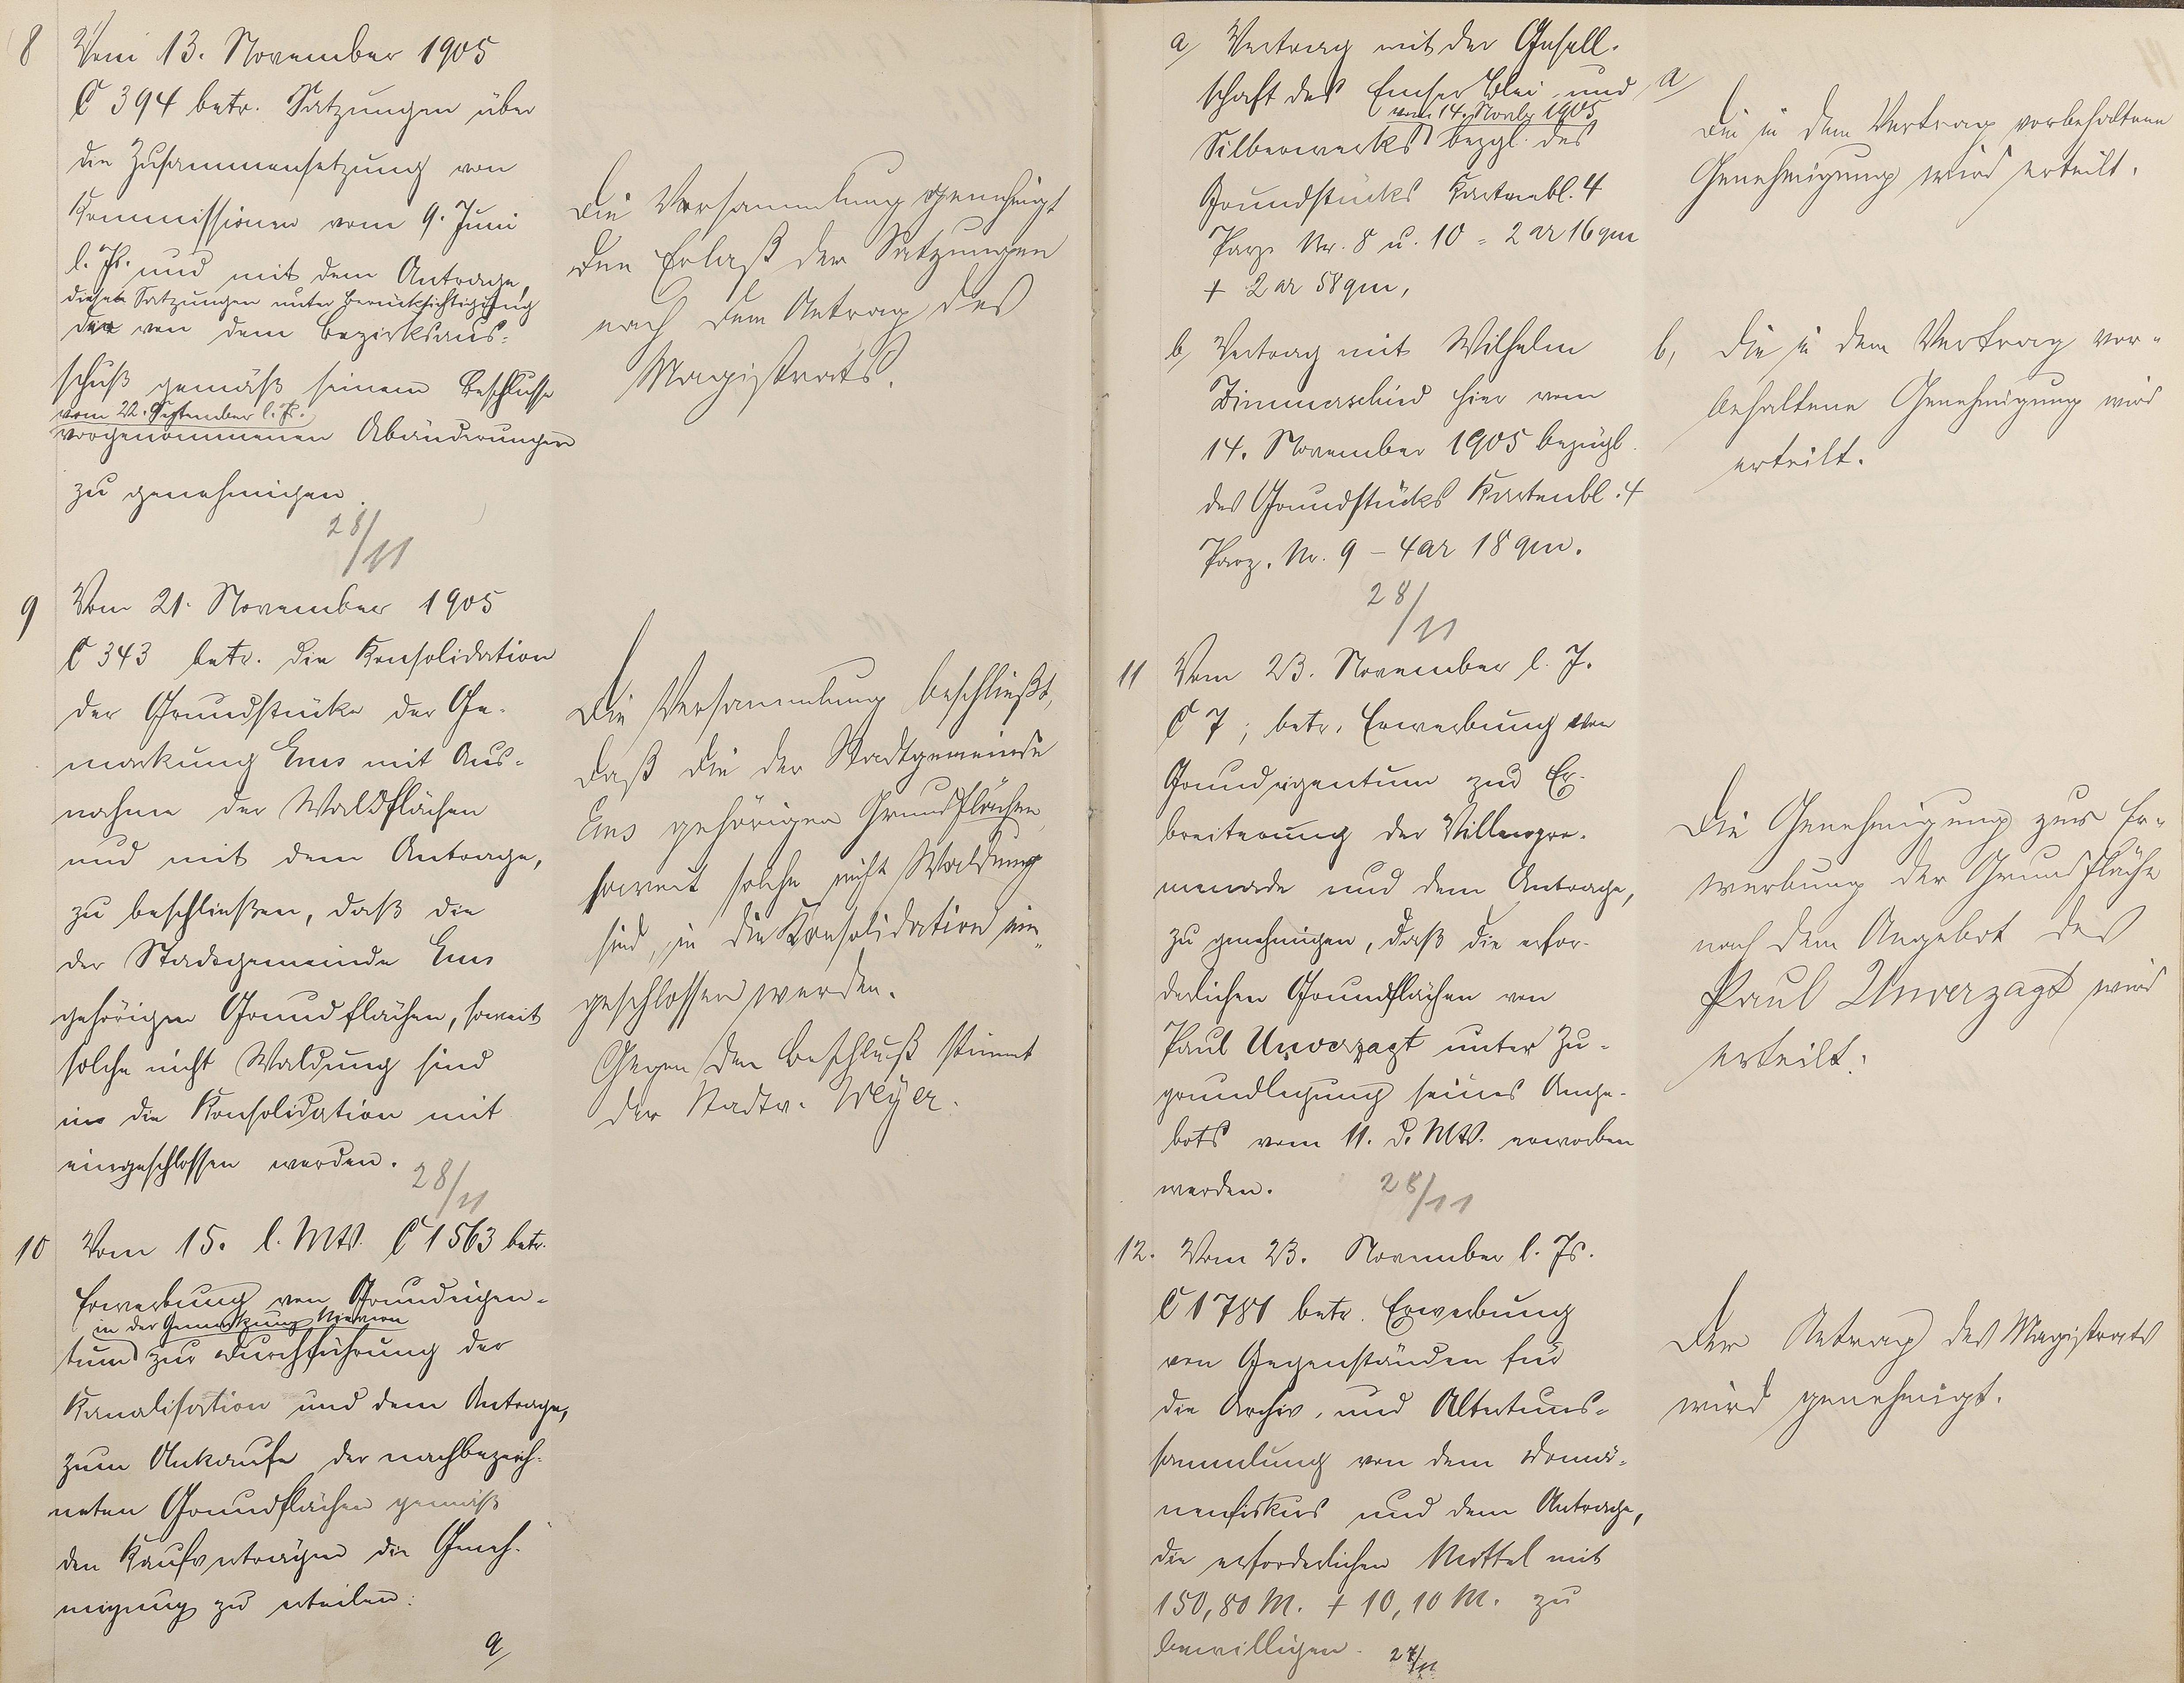 8 Vom 13. November 1905
C 394 betr. Satzungen über
die Zusammensetzung von
Kommissionen vom 9. Juni
l. Js. und mit dem Antrage,
diese Satzungen unter Berücksichtigung
der von dem Bezirksaus-
schuß gemäß seinem Beschlusse
vom 22. September l. Js.
vorgenommenen Abänderungen
zu genehmigen.
28/11
Die Versammlung genehmigt
den Erlaß der Satzungen
nach dem Antrag des
Magistrats.
9 Vom 21. November 1905
C 343 betr. die Konsolidation
der Grundstücke der Ge-
markung Ems mit Aus-
nahme der Waldflächen
und mit dem Antrage,
zu beschließen, daß die
der Stadtgemeinde Ems
gehörigen Grundflächen, soweit
solche nicht Waldung sind
in die Konsolidation mit
eingeschlossen werden.
28/11
Die Versammlung beschließt,
daß die der Stadtgemeinde
Ems gehörigen Grundflächen,
soweit solche nicht Waldung
sind, in die Konsolidation ein-
geschlossen werden.
Gegen den Beschluß stimmt
der Stadtv. Meyer.
10 Vom 15. l. Mts. C 1563 betr.
Erwerbung von Grundeigen-
in der Gemarkung Nievern
tum zur Durchführung der
Kanalisation und dem Antrage,
zum Ankaufe der nachbezeich-
neten Grundflächen gemäß
den Kaufverträgen die Geneh-
migung zu erteilen:
a/
a/ Vertrag mit der Gesell-
schaft des Emser Blei und
vom 14. Novbr 1905
Silberwerks bezgl. des
Grundstücks Kartenbl. 4
Parz. Nr. 8 u. 10 = 2 ar 16 qm
+ 2 ar 58 qm,
a/
Die in dem Vertrag vorbehaltene
Genehmigung wird erteilt.
b/ Vertrag mit Wilhelm
Zimmerschied hier vom
14. November 1905 bezügl.
des Grundstücks Kartenbl. 4
Parz. Nr. 9 – 4 ar 18 qm.
28/11
b, Die in dem Vertrag vor-
behaltene Genehmigung wird
erteilt.
11 Vom 23. November l. J.
C 7; betr. Erwerbung von
Grundeigentum zur Er-
breiterung der Villenpro-
menade und dem Antrage,
zu genehmigen, daß die erfor-
derlichen Grundflächen von
Paul Unverzagt unter Zu-
grundlegung seines Ange-
bots vom 11. d. Mts. erworben
werden.
28/11
Die Genehmigung zur Er-
werbung der Grundfläche
nach dem Angebot des
Paul Unverzagt wird
erteilt.
12. Vom 23. November l. Js.
C 1781 betr. Erwerbung
von Gegenständen für
die Archiv- und Altertums-
sammlung von dem Domä-
nenfiskus und dem Antrage,
die erforderlichen Mittel mit
150,80 M. + 10,10 M. zu
bewilligen.
27/11
Der Antrag des Magistrats
wird genehmigt.